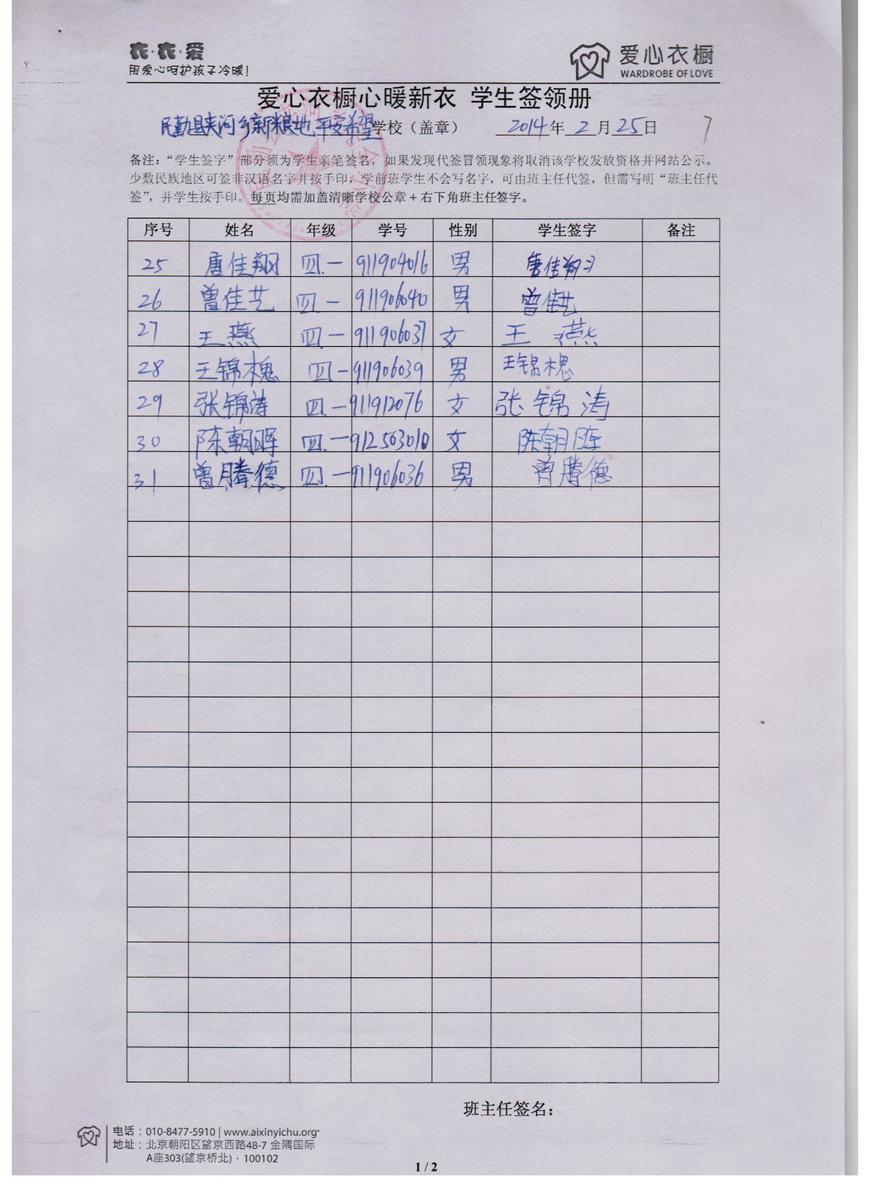 衣·衣·爱
用爱心呵护孩子冷暖!
爱心衣橱
WARDROBE OF LOVE
爱心衣橱心暖新衣 学生签领册
民勤县夹河乡新粮地平安希望学校（盖章） 2014年2月25日 7
备注：“学生签字”部分须为学生亲笔签名，如果发现代签冒领现象将取消该学校发放资格并网站公示。
少数民族地区可签非汉语名字并按手印；学前班学生不会写名字，可由班主任代签，但需写明“班主任代
签”，并学生按手印。每页均需加盖清晰学校公章+右下角班主任签字。
序号 姓名 年级 学号 性别 学生签字 备注
25 唐佳翔 四.一 911904016 男 唐佳翔
26 曾佳艺 四.一 911906040 男 曾佳艺
27 王燕 四一 911906037 女 王燕
28 王锦槐 四一 911906039 男 王锦槐
29 张锦涛 四.一 911912076 女 张锦涛
30 陈朝晖 四.一 912503010 女 陈朝晖
31 曾腾德 四.一 911906036 男 曾腾德
班主任签名：
电话：010-8477-5910 | www.aixinyichu.org
地址：北京朝阳区望京西路48-7 金隅国际
A座303(望京桥北)·100102
1 / 2